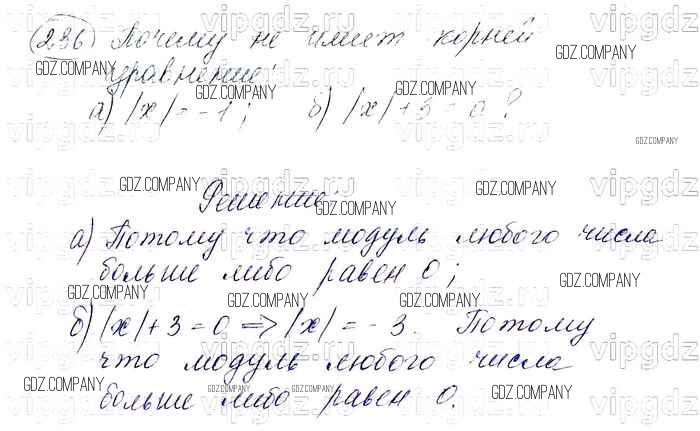 236 Почему не имеет корней
уравнение:
а) |x| = -1; б) |x| + 3 = 0?
Решение:
а) Потому что модуль любого числа
больше либо равен 0;
б) |x| + 3 = 0 => |x| = -3. Потому
что модуль любого числа
больше либо равен 0.
vipgdz.ru
GDZ.COMPANY